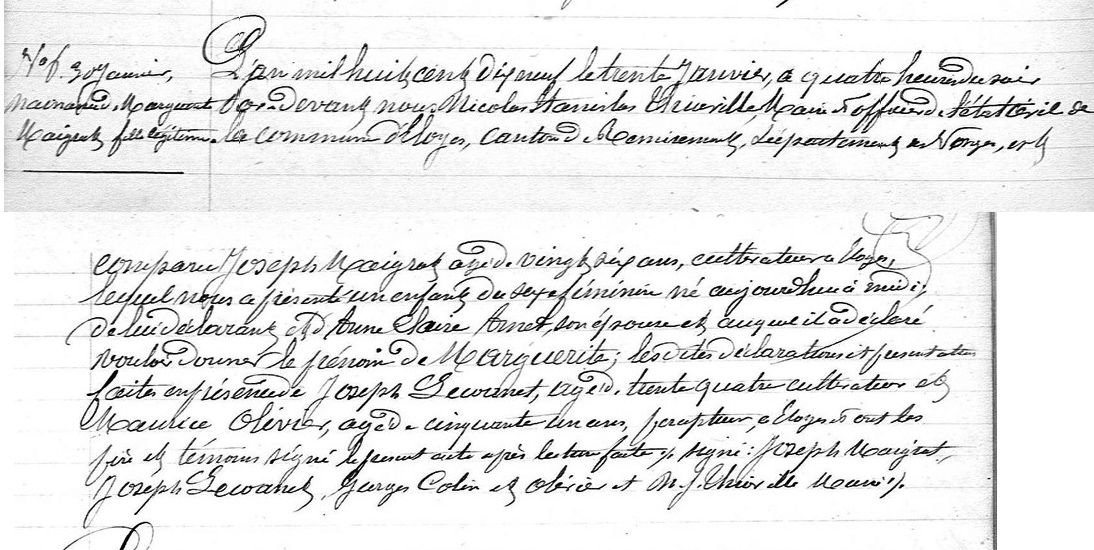 N° 6. 30 Janvier,
Naissance de Marguerite
Maigrat fille légitime.
L'an mil huit cent dix neuf le trente Janvier, a quatre heures du soir
par devant nous Nicolas Stanislas Thiriville, Maire et officier de l'état Civil de
la commune d'Eloyes, canton de Remiremont, département des Vosges, est
comparu Joseph Maigrat agé de vingt six ans, cultivateur a Eloyes,
lequel nous a présenté un enfant du sexe féminin né aujourdhui à midi,
de lui déclarant et d'Anne Claire Arnet, son épouse et auquel il a déclaré
vouloir donner le prénom de Marguerite; les dites déclarations et présentation
faites en présence de Joseph agé de trente quatre cultivateur et
Maurice Olivier, agé de cinquante un ans, percepteur, a Eloyes et ont les
père et témoins signé le présent acte après lecture faite ./. signé: Joseph Maigrat,
Joseph Georges Colin et Olivier et N. S. Thiriville Maire ./.